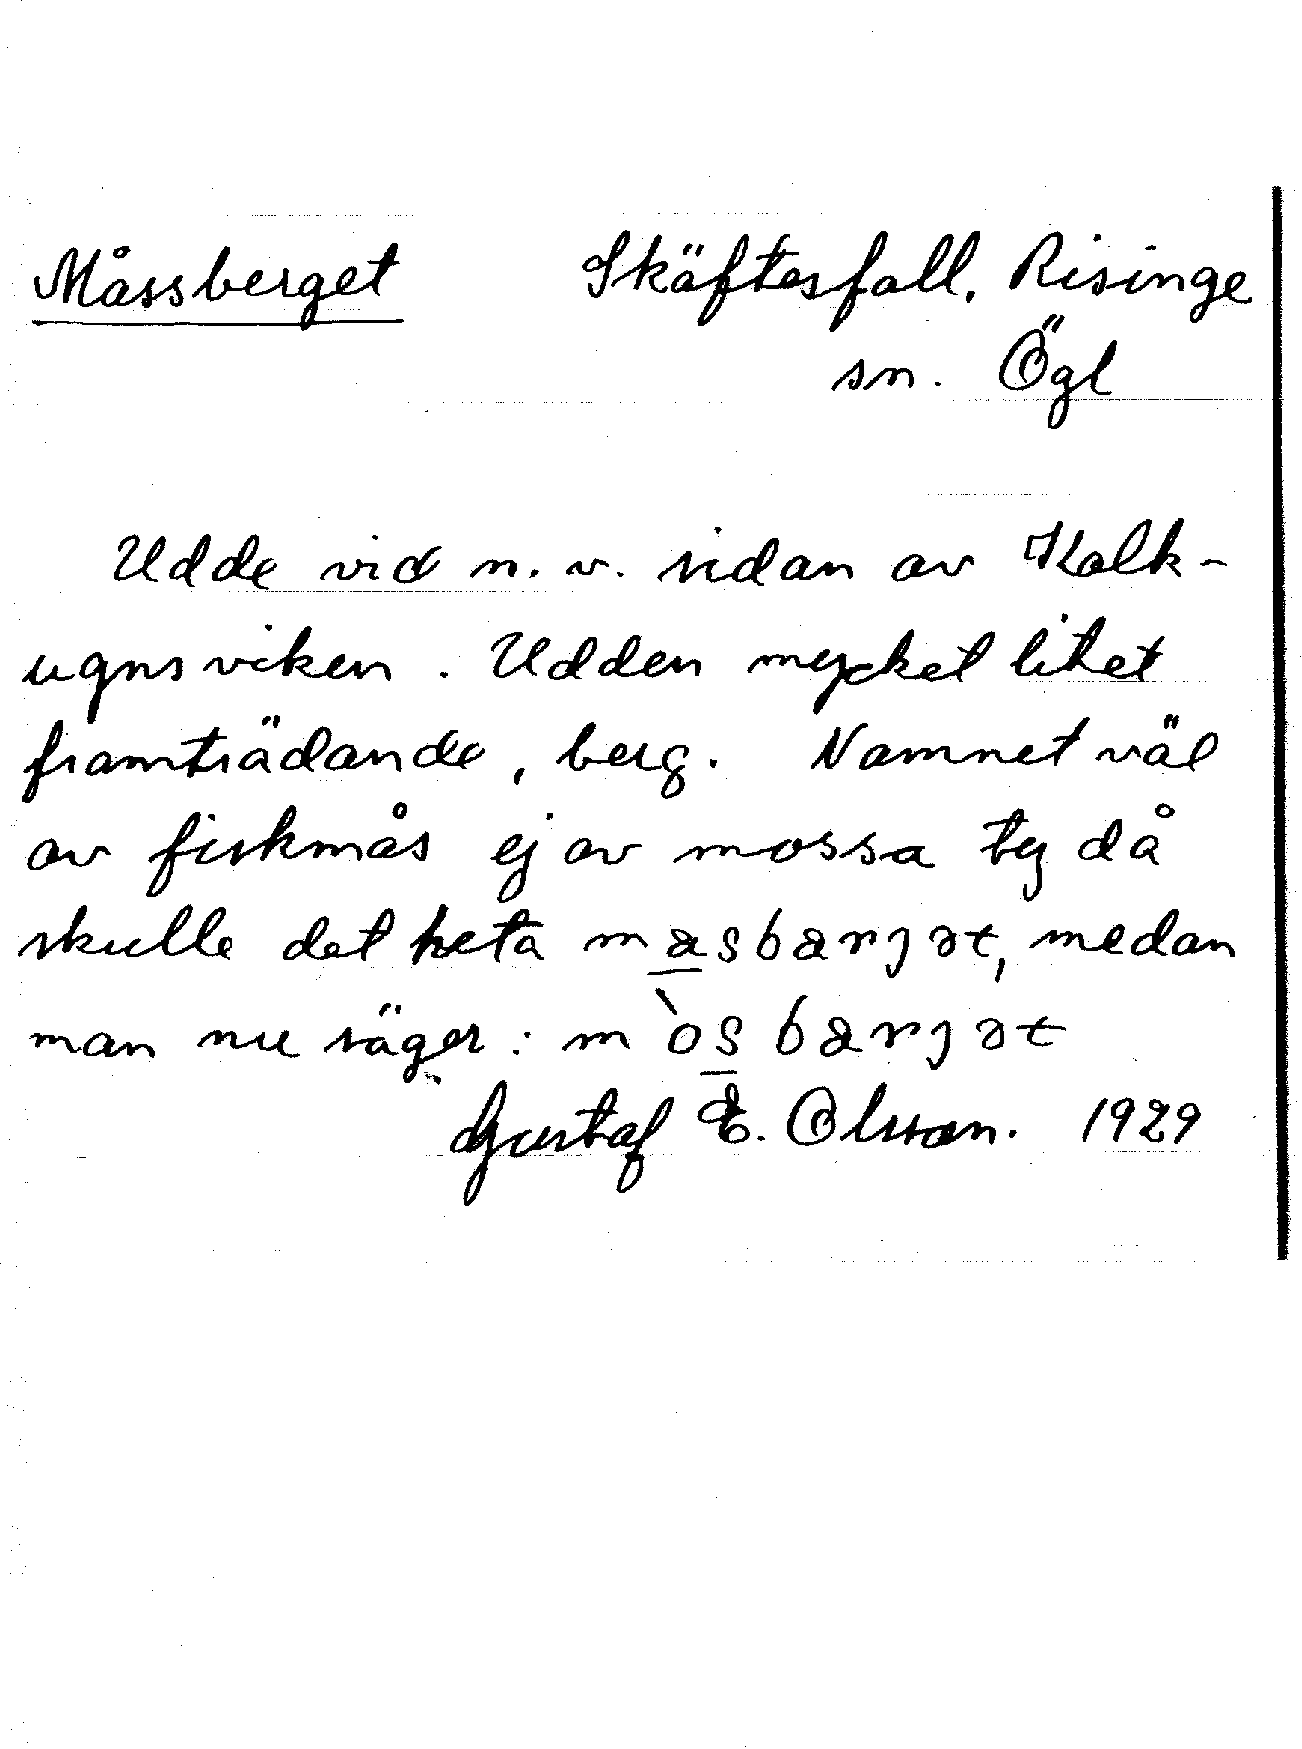 Måssberget Skäftesfall, Risinge
sn. Ögl
Udde vid n. v. sidan av Kalk-
ugnsviken. Udden mycket litet
framträdande, berg. Namnet väl
av fiskmås ej av mossa ty då
skulle det heta masbarjət, medan
man nu säger: m`osbarjət
Gustaf E. Olsson. 1929